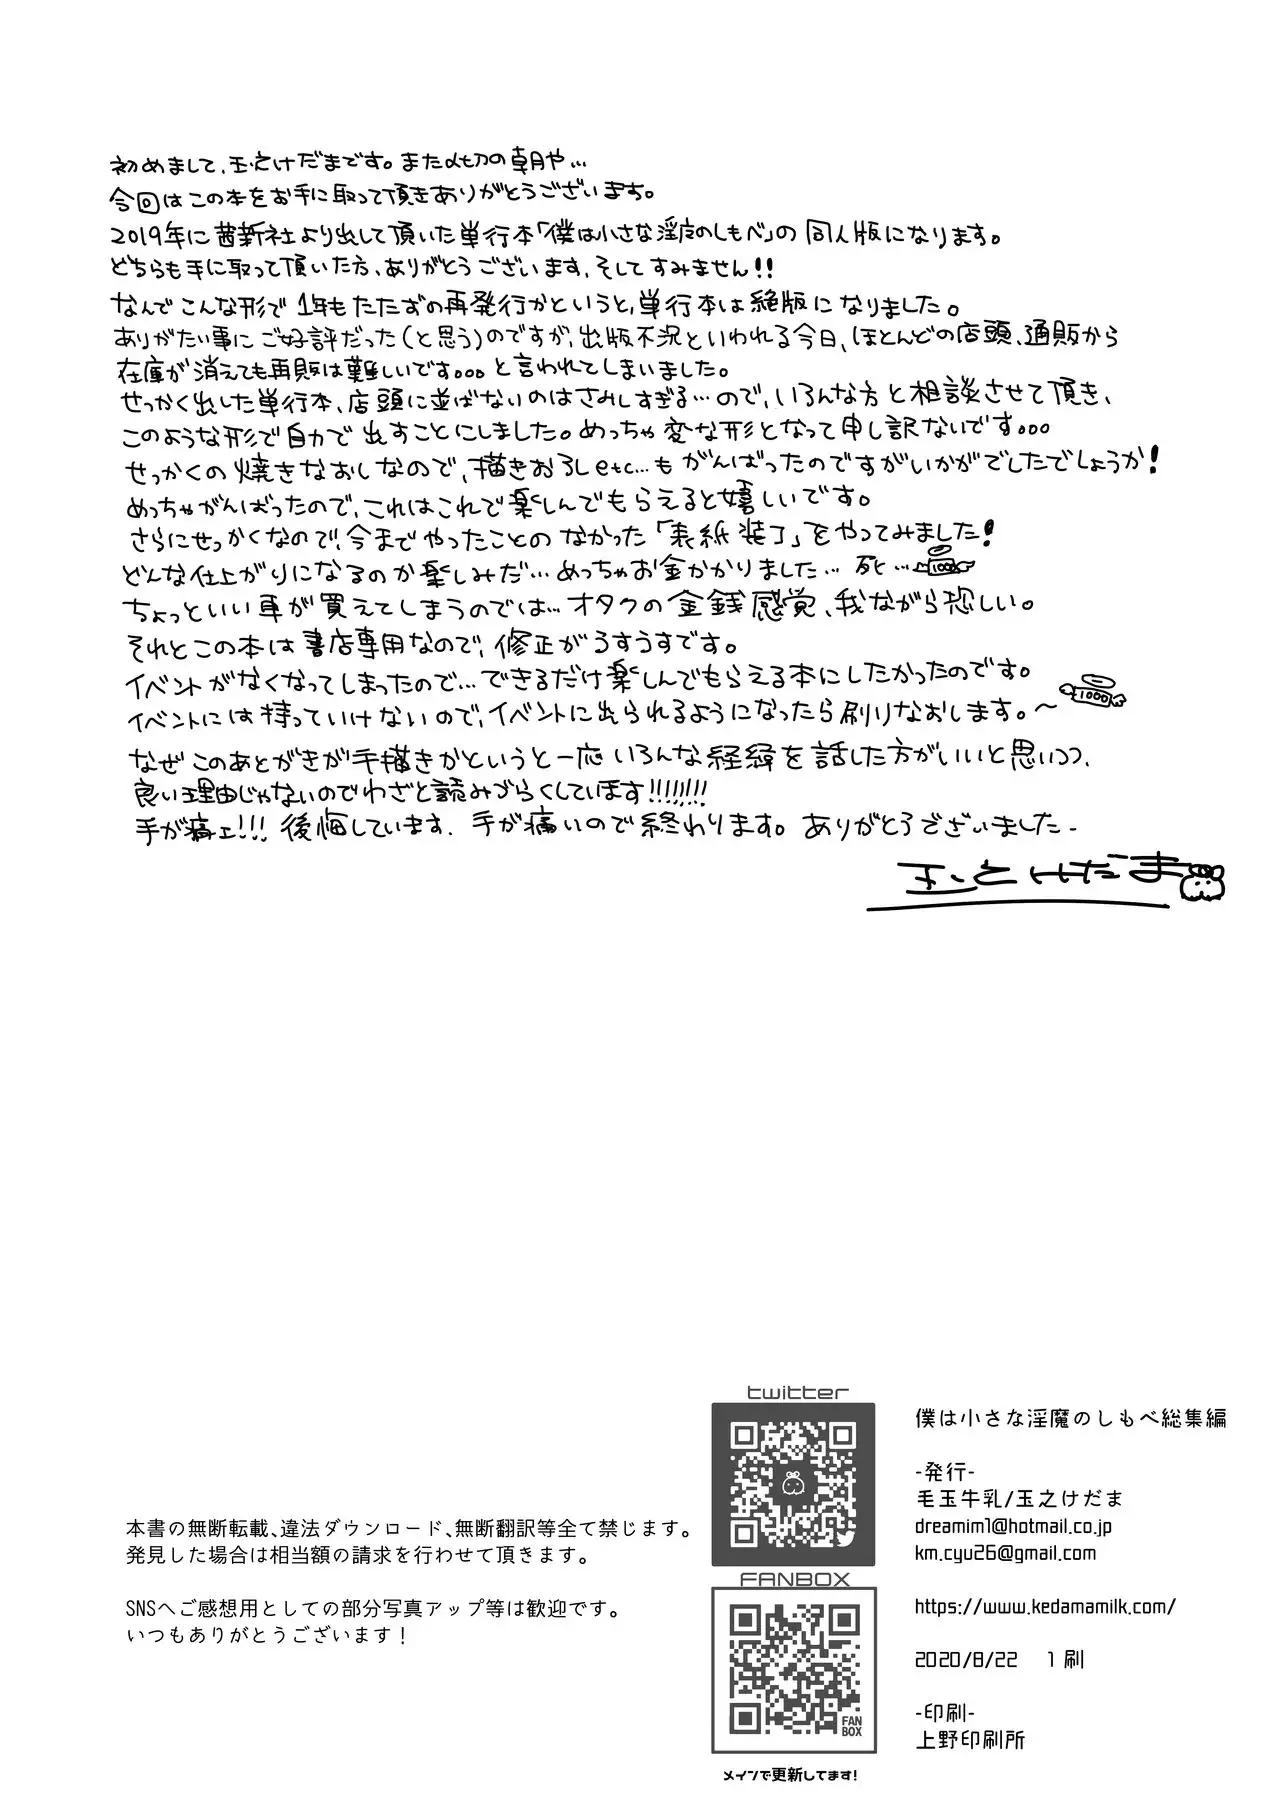 初めまして、玉之けだまです。また〆切の朝や…
今回はこの本をお手に取って頂きありがとうございます。
2019年に茜新社より出して頂いた単行本「僕は小さな淫魔のしもべ」の同人版になります。
どちらも手に取って頂いた方、ありがとうございます、そしてすみません!!
なんでこんな形で1年もたたずの再発行かというと、単行本は絶版になりました。
ありがたい事にご好評だった(と思う)のですが、出版不況といわれる今日、ほとんどの店頭、通販から
在庫が消えても再販は難しいです。。。と言われてしまいました。
せっかく出した単行本、店頭に並ばないのはさみしすぎる…ので、いろんな方と相談させて頂き、
このような形で自力で出すことにしました。めっちゃ変な形となって申し訳ないです。。。
せっかくの焼きなおしなので、描きおろしetc…もがんばったのですがいかがでしたでしょうか!
めっちゃがんばったので、これはこれで楽しんでもらえると嬉しいです。
さらにせっかくなので、今までやったことのなかった「表紙装丁」をやってみました!
どんな仕上がりになるのか楽しみだ…めっちゃお金かかりました…死…
1000
ちょっといい車が買えてしまうのでは…オタクの金銭感覚、我ながら恐しい。
それとこの本は書店専用なので、修正がうすうすです。
イベントがなくなってしまったので…できるだけ楽しんでもらえる本にしたかったのです。
イベントには持っていけないので、イベントに出られるようになったら刷りなおします。~
1000
なぜこのあとがきが手描きかというと一応いろんな経緯を話した方がいいと思いつつ、
良い理由じゃないのでわざと読みづらくしています!!!!!!!!
手が痛ェ!!! 後悔しています. 手が痛いので終わります。ありがとうございました-
玉之けだま
twitter
FANBOX
FAN
BOX
メインで更新してます!
本書の無断転載、違法ダウンロード、無断翻訳等全て禁じます。
発見した場合は相当額の請求を行わせて頂きます。
SNSへご感想用としての部分写真アップ等は歓迎です。
いつもありがとうございます!
僕は小さな淫魔のしもべ総集編
-発行-
毛玉牛乳/玉之けだま
dreamim1@hotmail.co.jp
km.cyu26@gmail.com
https://www.kedamamilk.com/
2020/8/22 1刷
-印刷-
上野印刷所